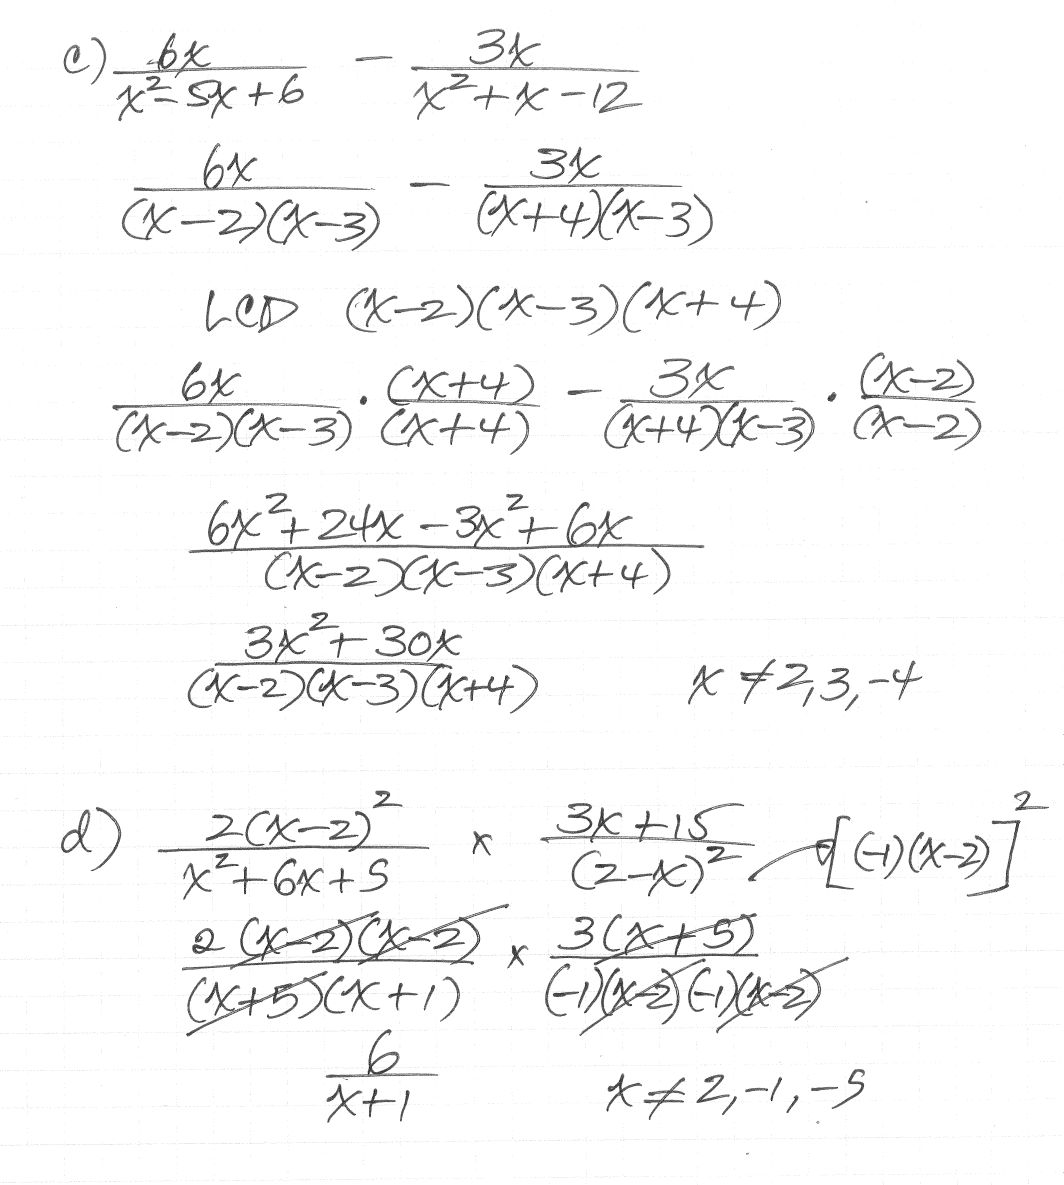 c) 6x/(x²-5x+6) - 3x/(x²+x-12)
6x/((x-2)(x-3)) - 3x/((x+4)(x-3))
LCD (x-2)(x-3)(x+4)
6x/((x-2)(x-3)) · (x+4)/(x+4) - 3x/((x+4)(x-3)) · (x-2)/(x-2)
(6x²+24x-3x²+6x)/((x-2)(x-3)(x+4))
(3x²+30x)/((x-2)(x-3)(x+4)) x ≠ 2, 3, -4
d) 2(x-2)²/(x²+6x+5) x (3x+15)/(2-x)² → [(-1)(x-2)]²
2(x-2)(x-2)/((x+5)(x+1)) x 3(x+5)/((-1)(x-2)(-1)(x-2))
6/(x+1) x ≠ 2, -1, -5